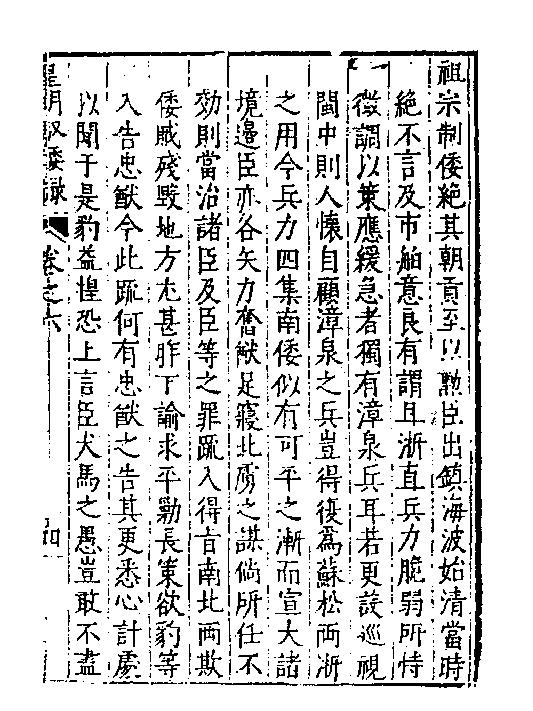 祖宗制倭絶其朝貢至以勲臣出鎮海波始清當時
絶不言及市舶意良有謂且浙直兵力脆弱所恃
徴調以策應緩急者獨有漳泉兵耳若更設巡視
閩中則人懐自顧漳泉之兵豈得復為蘇松両浙
之用今兵力四集南倭似有可平之漸而宣大諸
境邊臣亦各矢力奮猷足寢北虜之謀倘所任不
効則當治諸臣及臣等之罪疏入得旨南北両欺
倭賊殘毀地方尤甚昨下諭求平勦長策欲豹等
入告忠猷今此疏何有忠猷之告其更悉心計處
以聞于是豹益惶恐上言臣犬馬之愚豈敢不盡
皇明馭倭録
卷之六